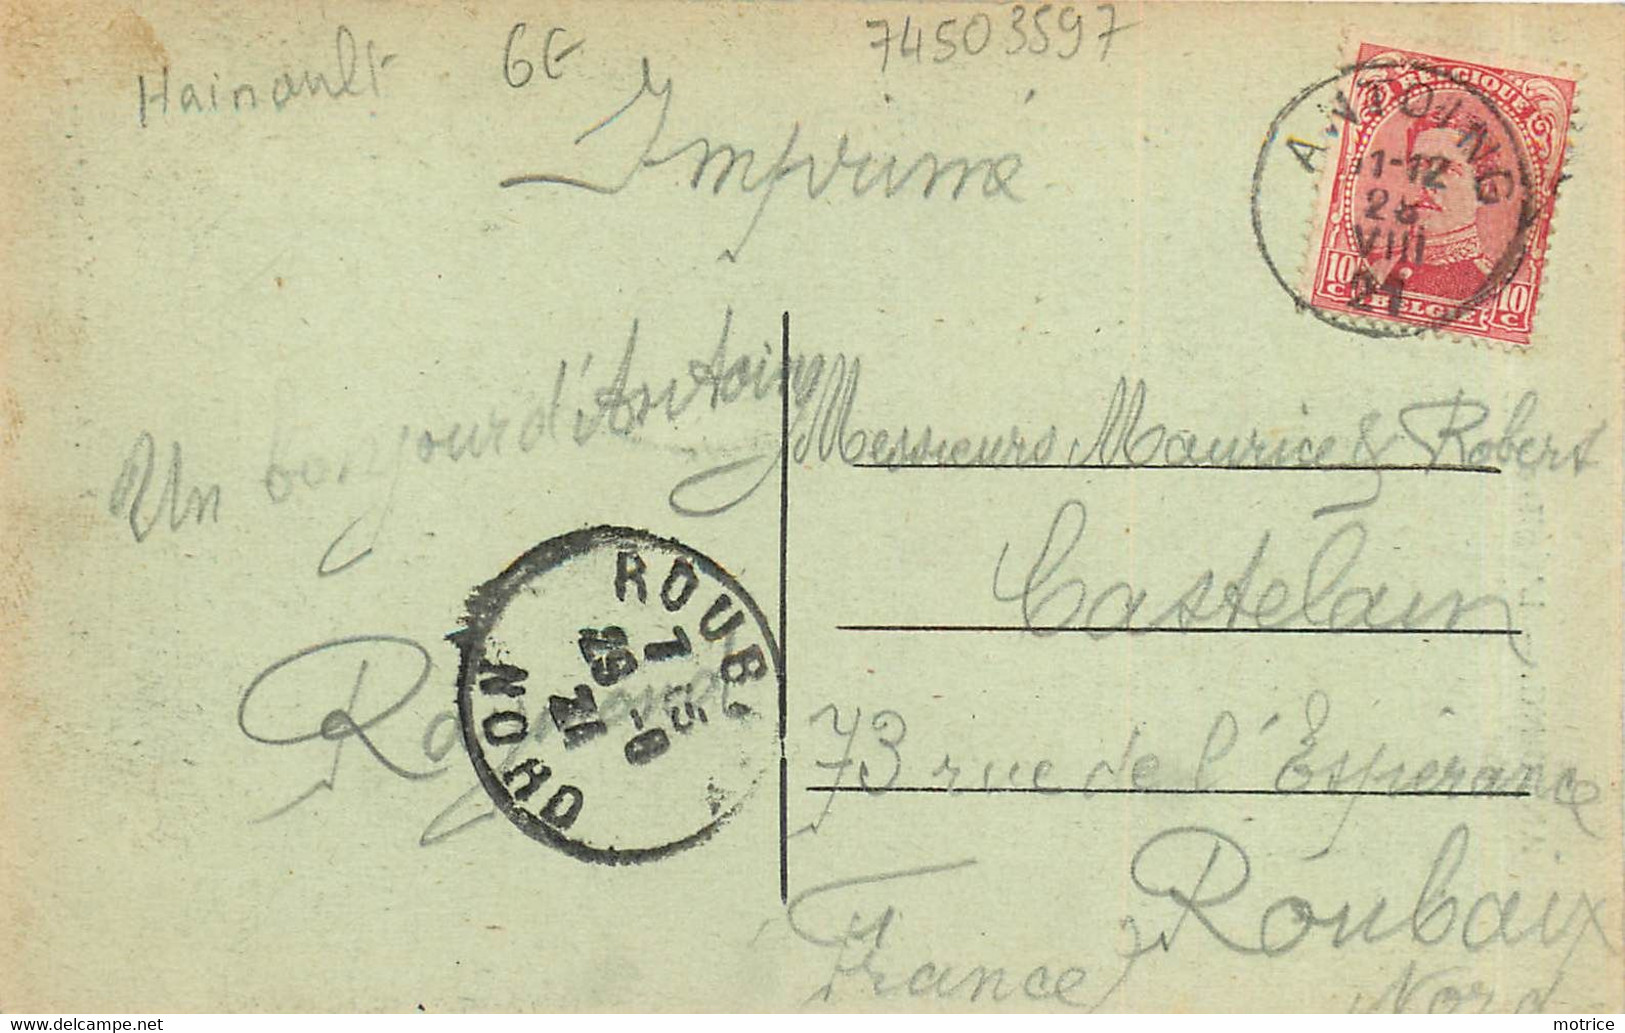 Hainault 6E 74503597
Imprimé
BELGIQUE
10 C BELGIE 10 C
ANTOING
11-12
28
VIII
21
Un bonjour d'Antoing
Raymond
ROUB
NORD
7
29
21
Messieurs Maurice & Robert
Castelain
73 rue de l'Esperance
Roubaix
France Nord
https://www.delcampe.net
motrice